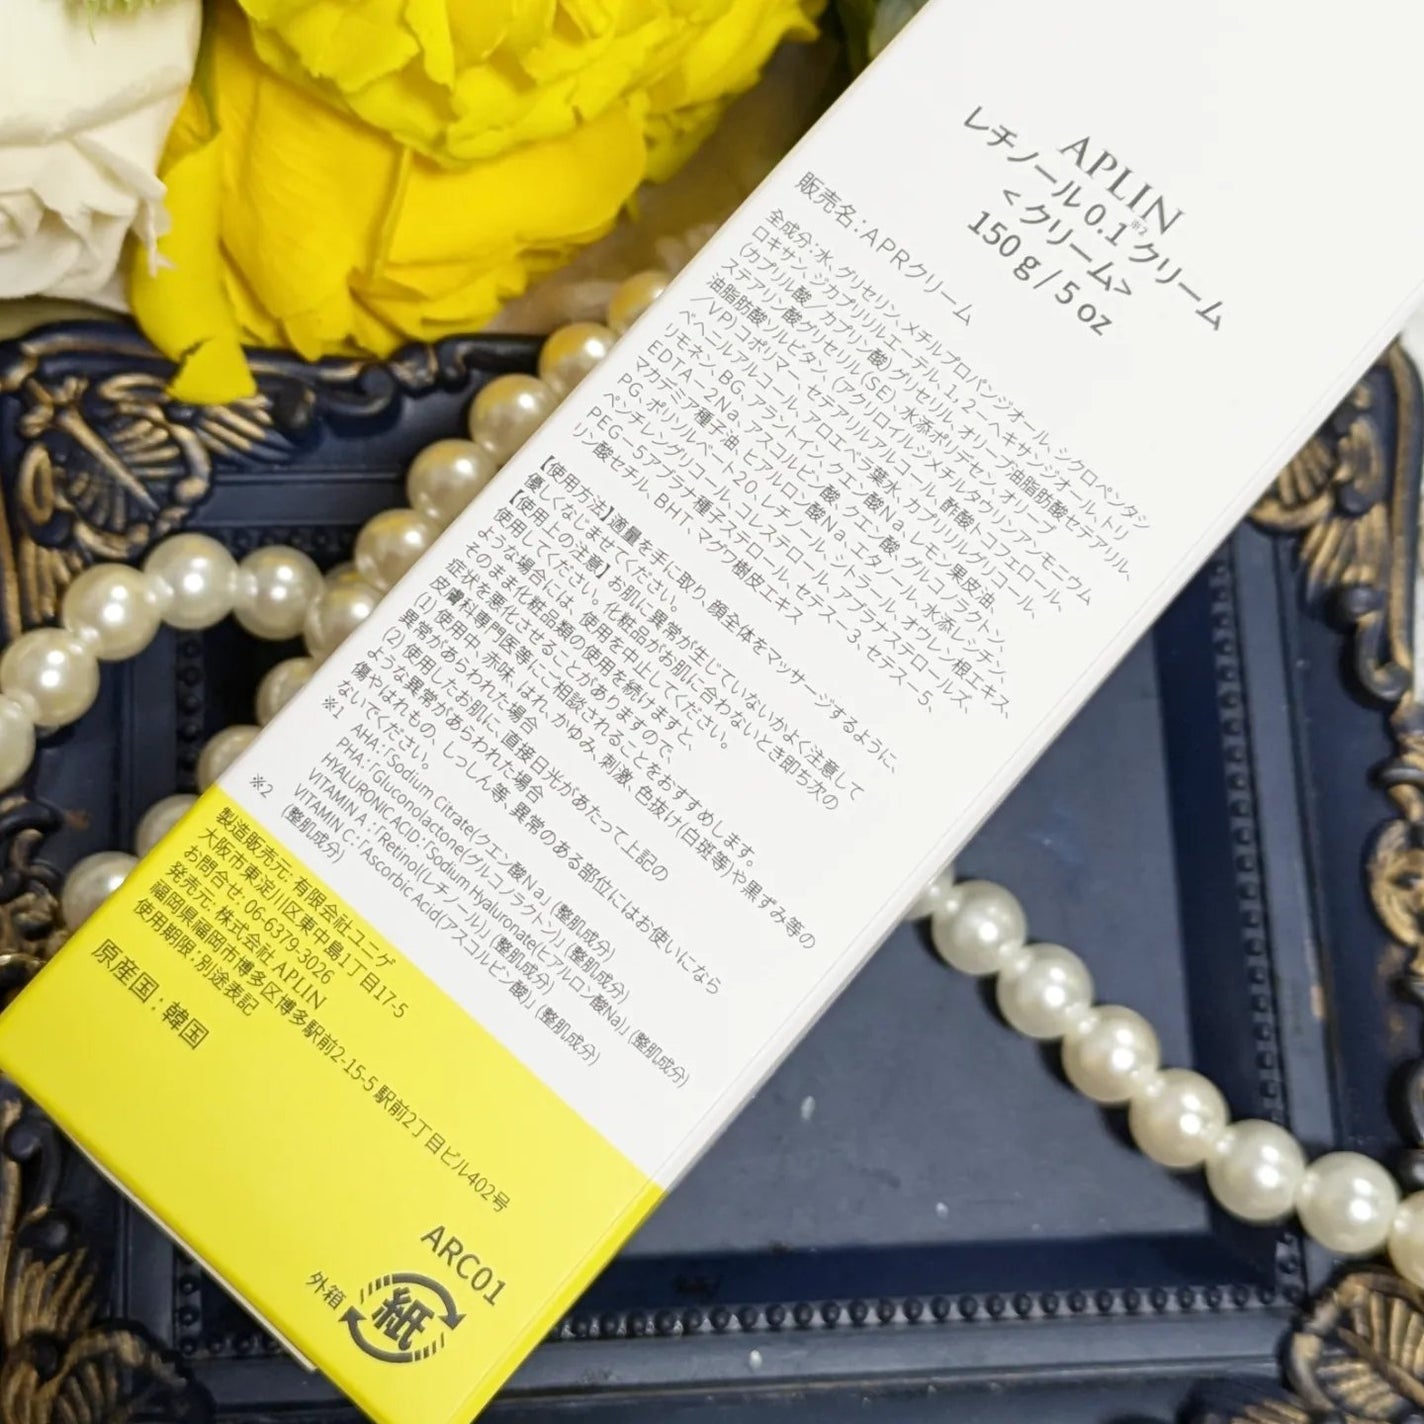 APLIN
レチノール0.1※2クリーム
<クリーム>
150g / 5 oz
販売名：APRクリーム
全成分：水、グリセリン、メチルプロパンジオール、シクロペンタシ
ロキサン、ジカプリリルエーテル、1,2-ヘキサンジオール、トリ
(カプリル酸／カプリン酸)グリセリル、オリーブ油脂肪酸セテアリル、
ステアリン酸グリセリル(SE)、水添ポリデセン、オリーブ
油脂肪酸ソルビタン、(アクリロイルジメチルタウリンアンモニウム
／VP)コポリマー、セテアリルアルコール、酢酸トコフェロール、
ベヘニルアルコール、アロエベラ葉水、カプリリルグリコール、
リモネン、BG、アラントイン、クエン酸Na、レモン果皮油、
EDTA-2Na、アスコルビン酸、クエン酸、グルコノラクトン、
マカデミア種子油、ヒアルロン酸Na、エタノール、水添レシチン、
PG、ポリソルベート20、レチノール、シトラール、オウレン根エキス、
ペンチレングリコール、コレステロール、アブラナステロールズ、
PEG-5アブラナ種子ステロール、セテス-3、セテス-5、
リン酸セチル、BHT、マグワ樹皮エキス
【使用方法】適量を手に取り、顔全体をマッサージするように、
優しくなじませてください。
【使用上の注意】お肌に異常が生じていないかよく注意して
使用してください。化粧品がお肌に合わないとき即ち次の
ような場合には、使用を中止してください。
そのまま化粧品類の使用を続けますと、
症状を悪化させることがありますので、
皮膚科専門医等にご相談されることをおすすめします。
(1)使用中、赤味、はれ、かゆみ、刺激、色抜け(白斑等)や黒ずみ等の
異常があらわれた場合
(2)使用したお肌に、直接日光があたって上記の
ような異常があらわれた場合
傷やはれもの、しっしん等、異常のある部位にはお使いになら
ないでください。
※1 AHA：「Sodium Citrate(クエン酸Na)」(整肌成分)
PHA：「Gluconolactone(グルコノラクトン)」(整肌成分)
HYALURONIC ACID：「Sodium Hyaluronate(ヒアルロン酸Na)」(整肌成分)
VITAMIN A：「Retinol(レチノール)」(整肌成分)
VITAMIN C：「Ascorbic Acid(アスコルビン酸)」(整肌成分)
※2 (整肌成分)
製造販売元：有限会社ユニゲ
大阪市東淀川区東中島1丁目17-5
お問合せ：06-6379-3026
発売元：株式会社 APLIN
福岡県福岡市博多区博多駅前2-15-5 駅前2丁目ビル402号
使用期限：別途表記
原産国：韓国
ARC01
外箱
紙